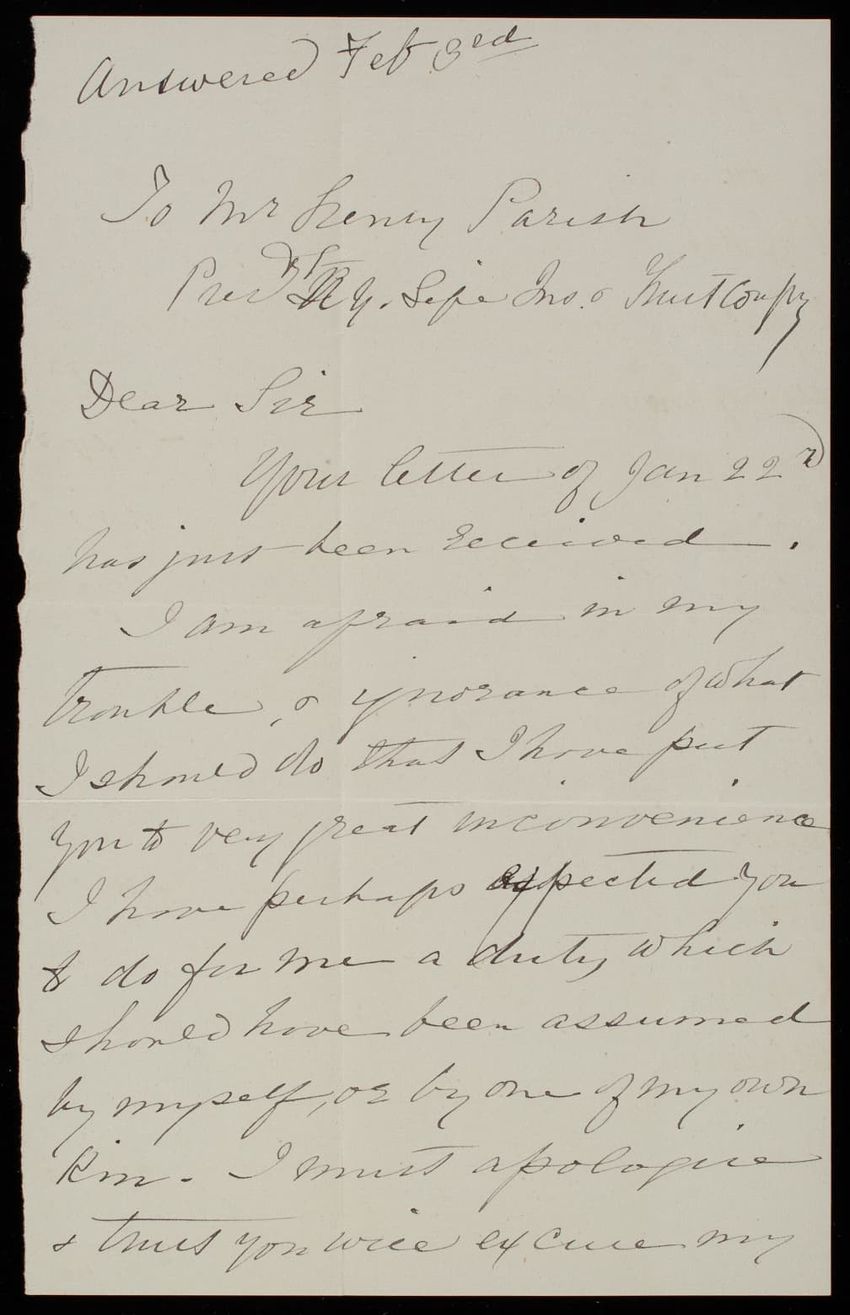 Answered Feb 3rd
To Mr Henry Parish
Presdt N.Y. Life Ins. & Trust Compy
Dear Sir
Your letter of Jan 22d
has just been received.
I am afraid in my
trouble, & ignorance of what
I should do that I have put
you to very great inconvenience
I have perhaps expected you
to do for me a duty which
should have been assumed
by myself, or by one of my own
kin. I must apologise
& trust you will excuse my